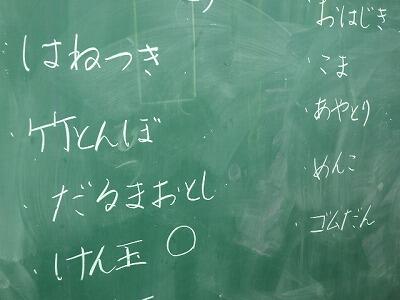 ・はねつき
・竹とんぼ
・だるまおとし
・けん玉 ○
・おはじき
・こま
・あやとり
・めんこ
・ゴムだん